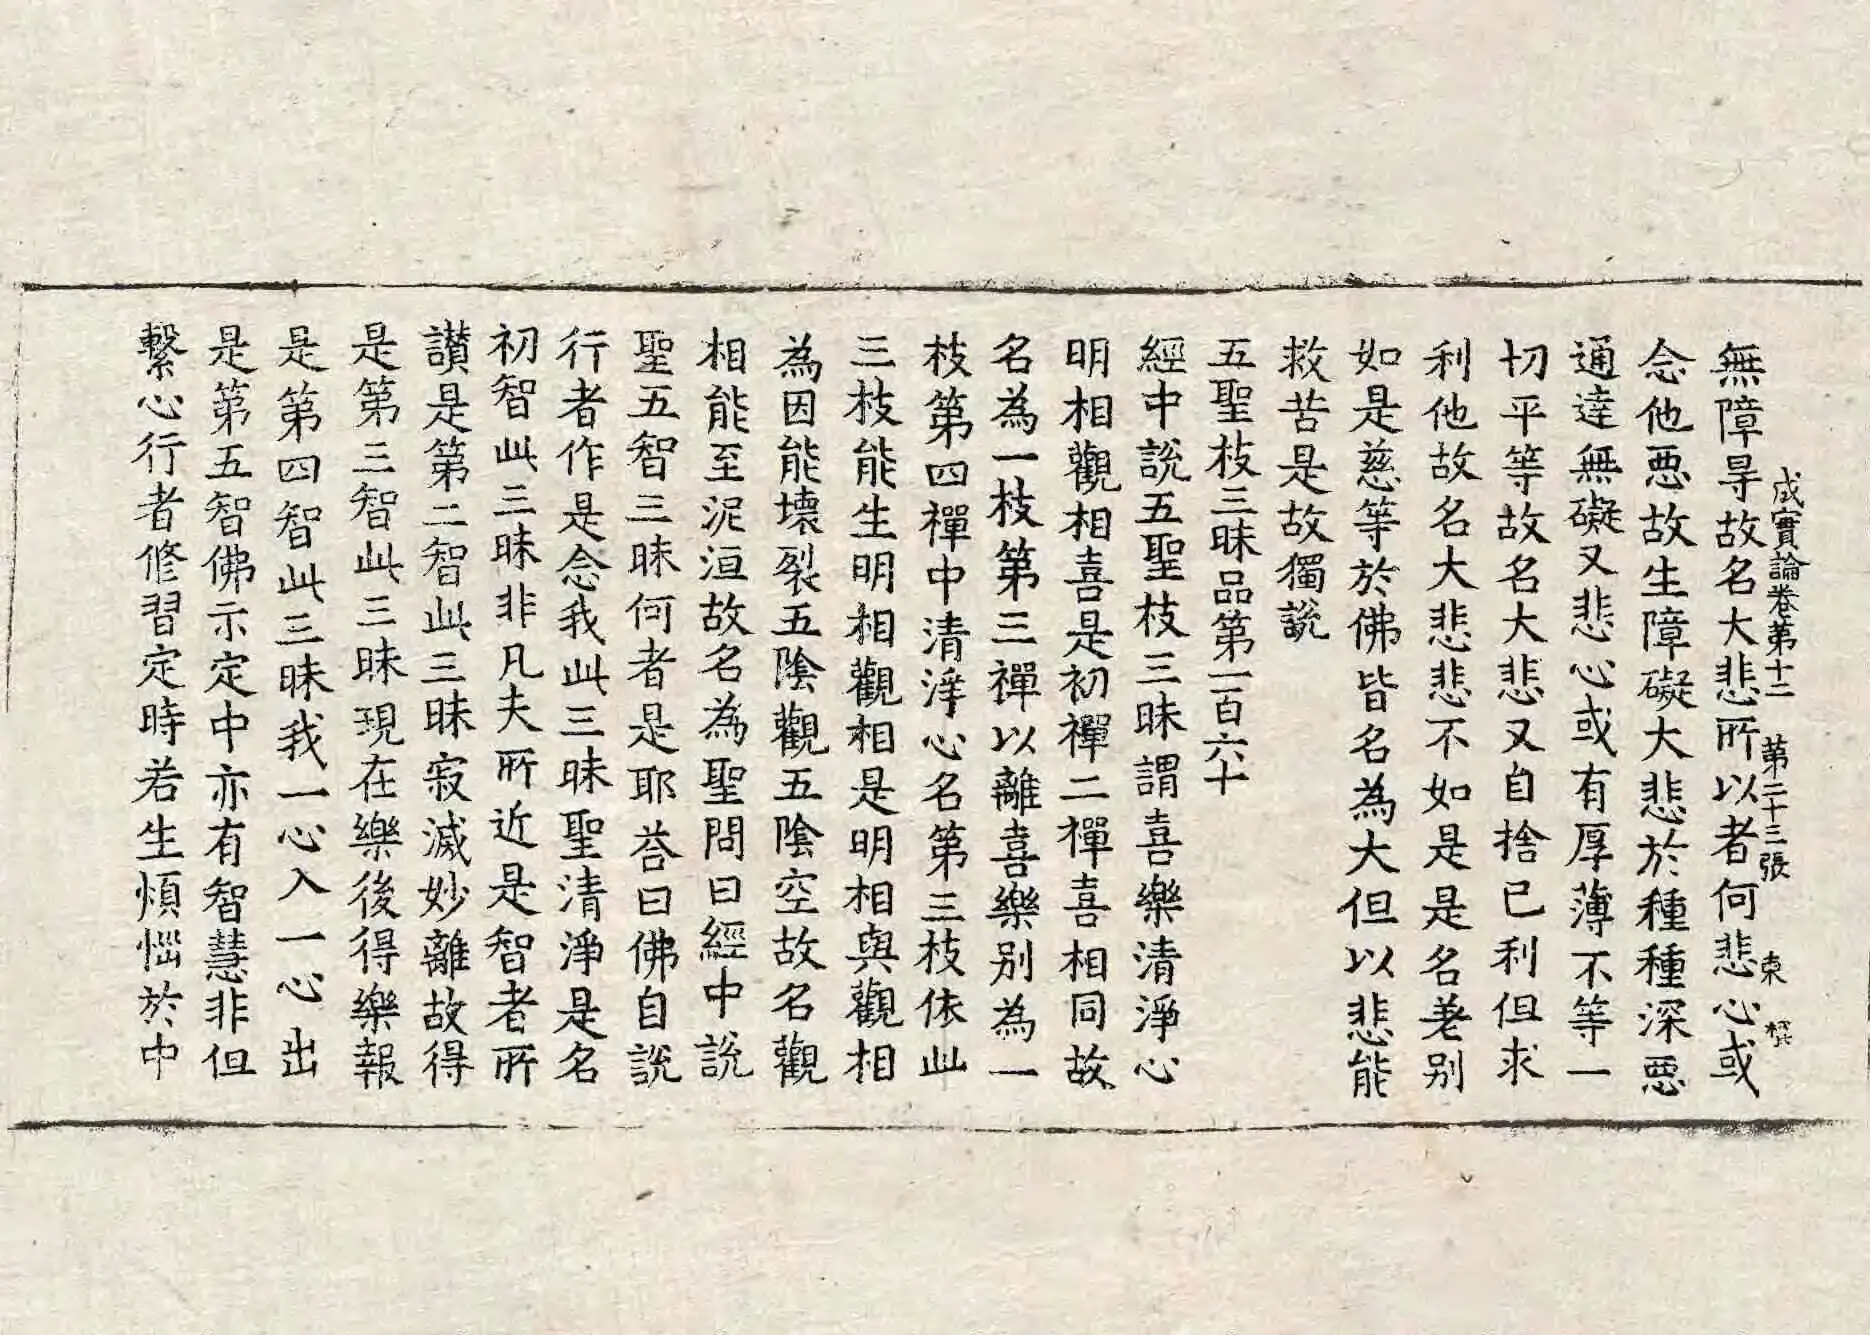 成實論卷第十二　第二十三張　東
無障㝵故名大悲所以者何悲心或
念他惡故生障礙大悲於種種深惡
通達無礙又悲心或有厚薄不等一
切平等故名大悲又自捨已利但求
利他故名大悲悲不如是是名差别
如是慈等於佛皆名為大但以悲能
救苦是故獨說
五聖枝三昧品第一百六十
經中說五聖枝三昧謂喜樂清淨心
明相觀相喜是初禪二禪喜相同故
名為一枝第三禪以離喜樂別為一
枝第四禪中清淨心名第三枝依此
三枝能生明相觀相是明相與觀相
為因能壞裂五陰觀五陰空故名觀
相能至泥洹故名為聖問曰經中說
聖五智三昧何者是耶荅曰佛自說
行者作是念我此三昧聖清淨是名
初智此三昧非凡夫所近是智者所
讃是第二智此三昧寂滅妙離故得
是第三智此三昧現在樂後得樂報
是第四智此三昧我一心入一心出
是第五智佛示定中亦有智慧非但
繫心行者修習定時若生煩惱於中